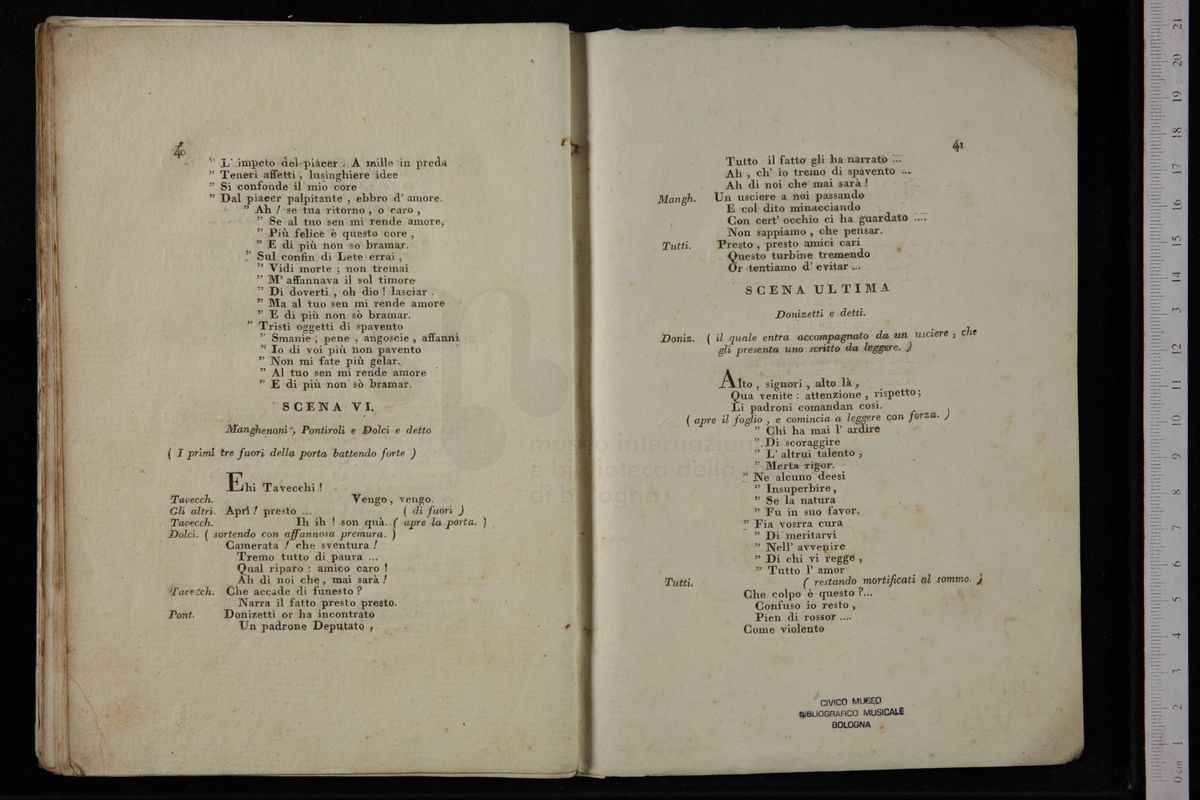 40
" L' impeto del piacer . A mille in preda
" Teneri affetti , lusinghiere idee
" Si confonde il mio core
" Dal piacer palpitante , ebbro d' amore.
" Ah ! se tua ritorno , o caro ,
" Se al tuo sen mi rende amore,
" Più felice è questo core ,
" E di più non so bramar.
" Sul confin di Lete errai ,
" Vidi morte ; non tremai
" M' affannava il sol timore
" Di doverti , oh dio ! lasciar .
" Ma al tuo sen mi rende amore
" E di più non sò bramar.
" Tristi oggetti di spavento
" Smanie , pene , angoscie , affanni
" Io di voi più non pavento
" Non mi fate più gelar.
" Al tuo sen mi rende amore
" E di più non sò bramar.
SCENA VI.
Manghenoni , Pontiroli e Dolci e detto
( I primi tre fuori della porta battendo forte )
Ehi Tavecchi !
Tavecch. Vengo , vengo.
Gli altri. Apri ! presto ... ( di fuori )
Tavecch. Ih ih ! son quà. ( apre la porta. )
Dolci. ( sortendo con affannosa premura. )
Camerata ! che sventura !
Tremo tutto di paura ...
Qual riparo : amico caro !
Ah di noi che , mai sarà !
Tavecch. Che accade di funesto ?
Narra il fatto presto presto.
Pont. Donizetti or ha incontrato
Un padrone Deputato ,
41
Tutto il fatto gli ha narrato ...
Ah , ch' io tremo di spavento ...
Ah di noi che mai sarà !
Mangh. Un usciere a noi passando
E col dito minacciando
Con cert' occhio ci ha guardato ....
Non sappiamo , che pensar.
Tutti. Presto , presto amici cari
Questo turbine tremendo
Or tentiamo d' evitar ...
SCENA ULTIMA
Donizetti e detti.
Doniz. ( il quale entra accompagnato da un usciere , che
gli presenta uno scritto da leggere. )
Alto , signori , alto là ,
Qua venite : attenzione , rispetto ;
Li padroni comandan così.
( apre il foglio , e comincia a leggere con forza. )
" Chi ha mai l' ardire
" Di scoraggire
" L' altrui talento ,
" Merta rigor.
" Ne alcuno deesi
" Insuperbire ,
" Se la natura
" Fu in suo favor.
" Fia vosrra cura
" Di meritarvi
" Nell' avvenire
" Di chi vi regge ,
" Tutto l' amor
Tutti. ( restando mortificati al sommo. )
Che colpo è questo ?...
Confuso io resto ,
Pien di rossor ....
Come violento
CIVICO MUSEO
BIBLIOGRAFICO MUSICALE
BOLOGNA
museo internazion
e biblioteca della
di bologna
0 cm 1 2 3 4 5 6 7 8 9 10 11 12 13 14 15 16 17 18 19 20 21